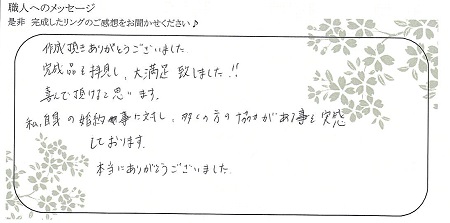 職人へのメッセージ
是非 完成したリングのご感想をお聞かせください♪
作成頂きありがとうございました
完成品を拝見し、大満足 致しました!!
喜んで頂けると思います。
私自身の婚約事に対し、多くの方の協力がある事を実感
しております。
本当にありがとうございました